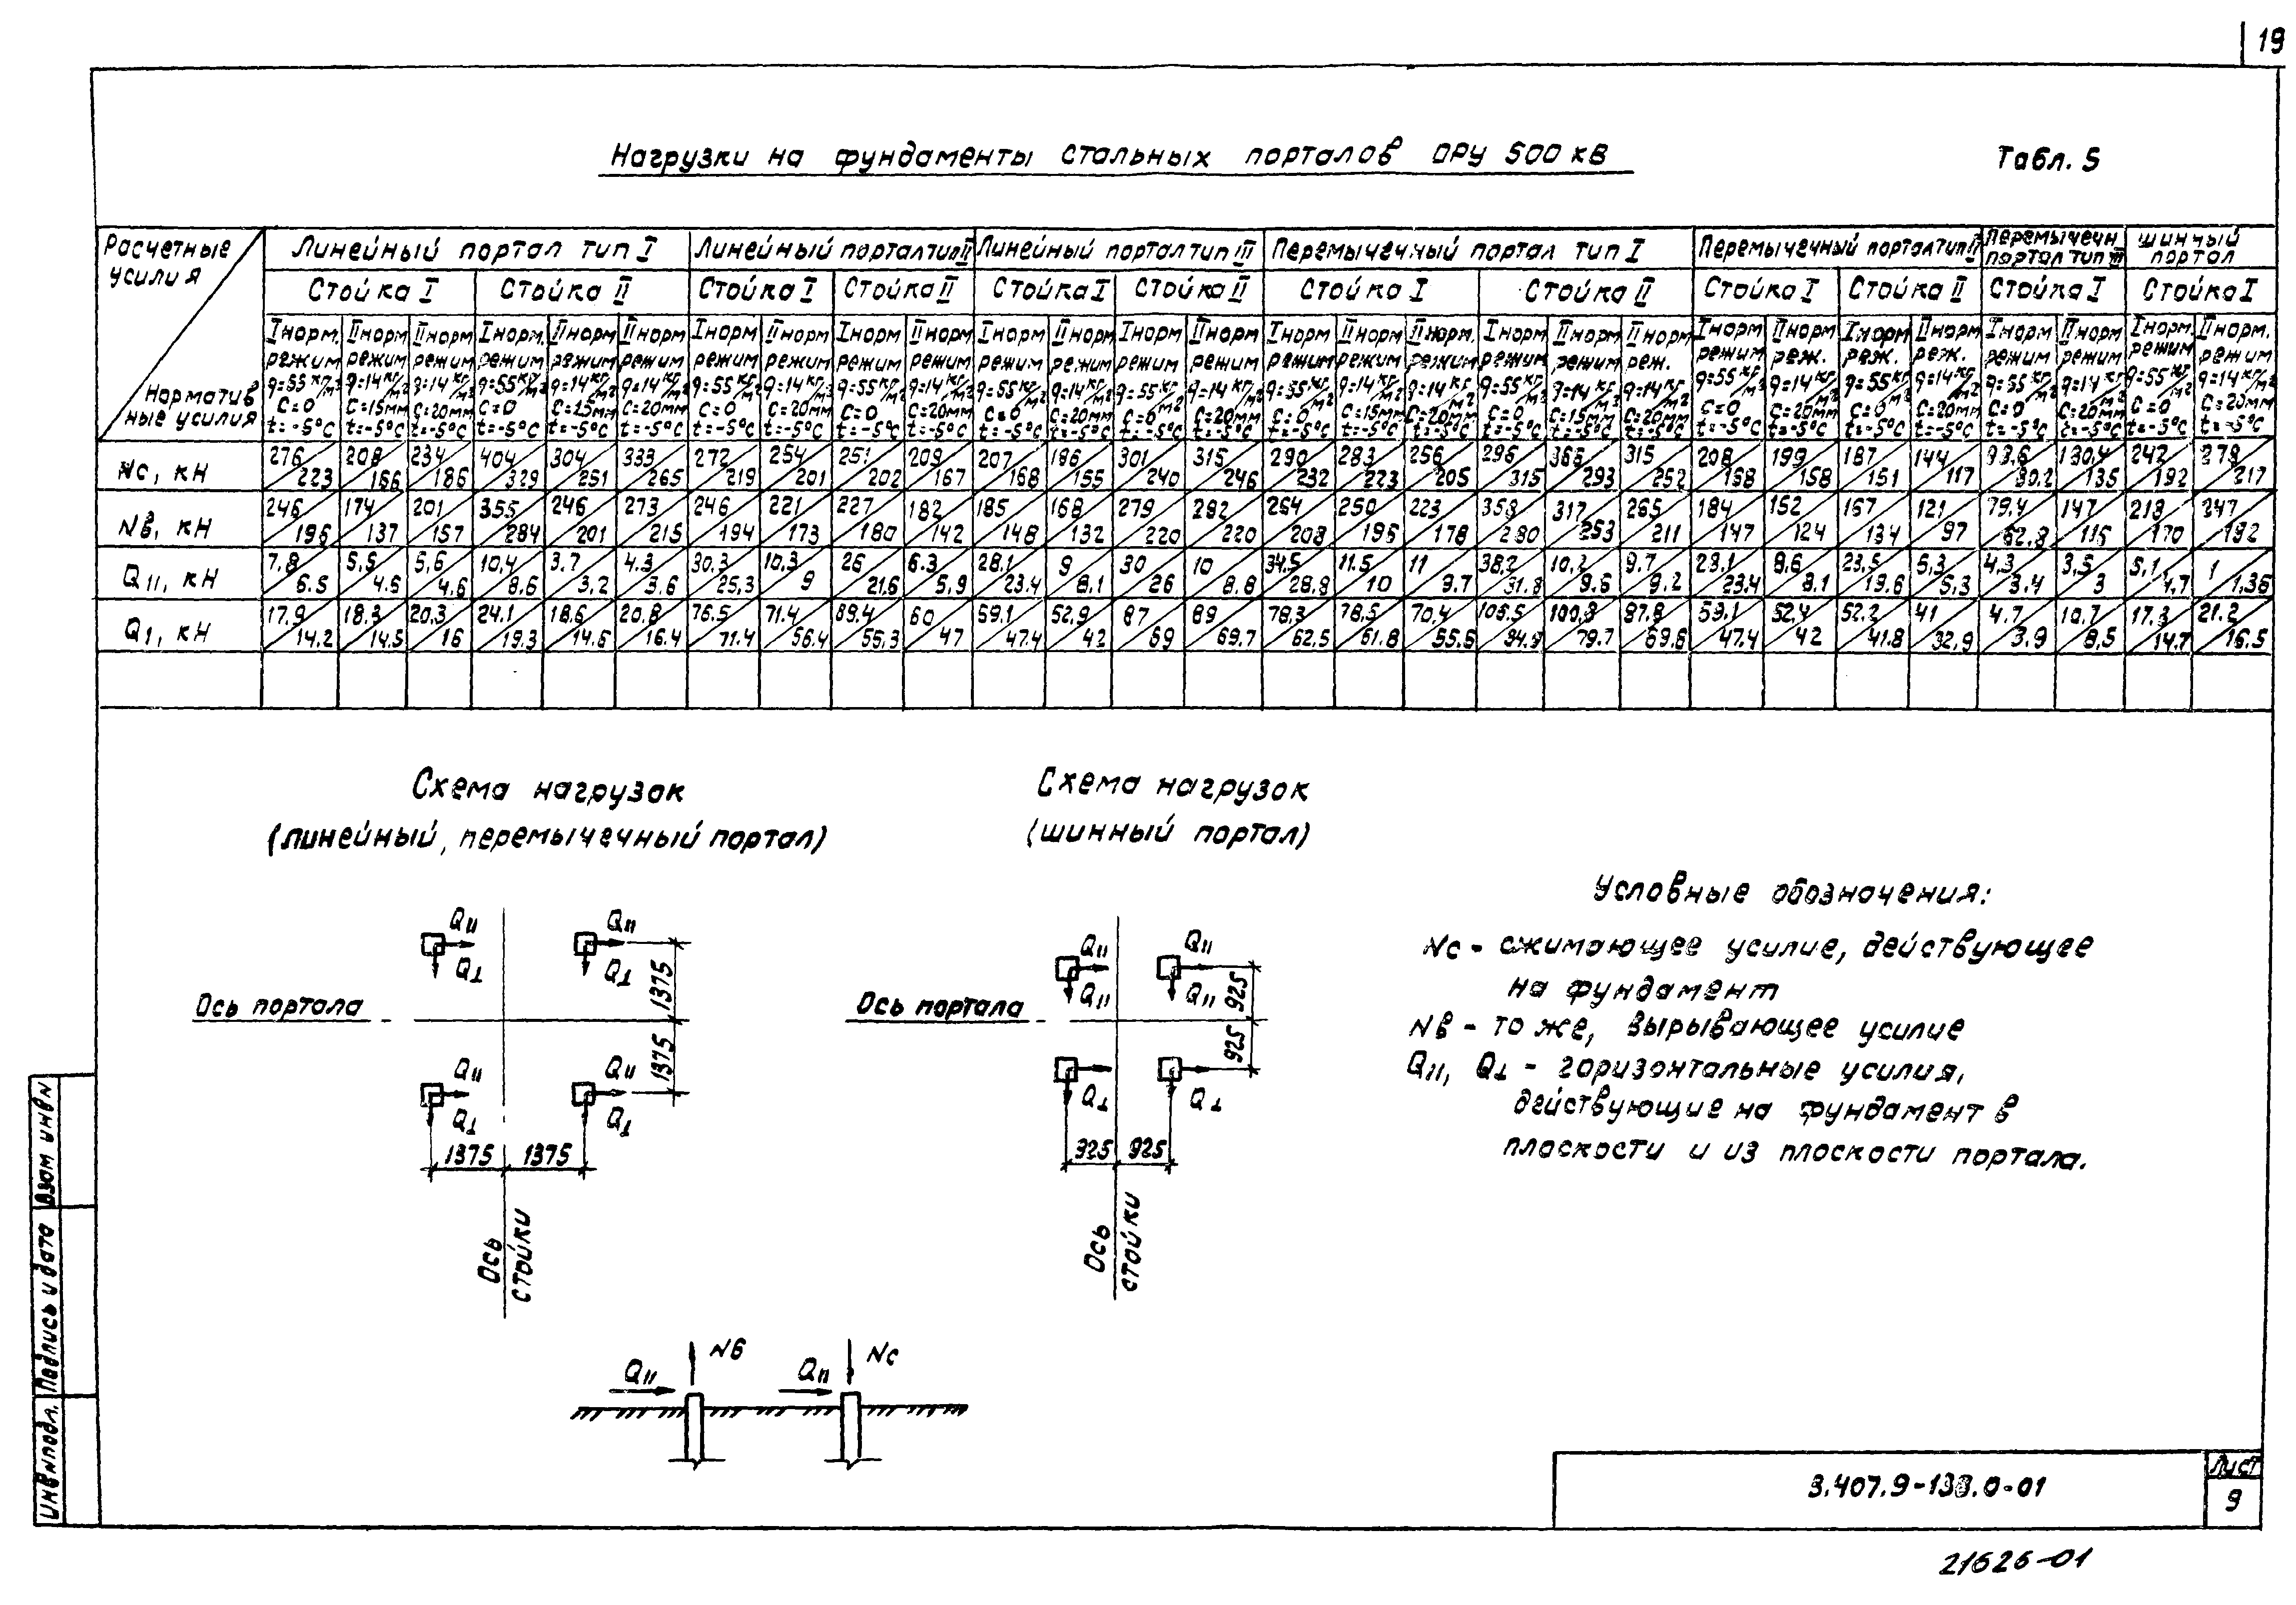 19
Нагрузки на фундаменты стальных порталов ОРУ 500 кВ
Табл. 5
Расчетные усилия
Норматив ные усилия
Линейный портал тип I
Линейный портал тип II
Линейный портал тип III
Перемычечный портал тип I
Перемычечный портал тип II
Перемычечн. портал тип III
Шинный портал
Стойка I
Стойка II
Стойка I
Стойка II
Стойка I
Стойка II
Стойка I
Стойка II
Стойка I
Стойка II
Стойка I
Стойка I
I норм. режим q=55 кг/м² C=0 t=-5°C
II норм режим q=14 кг/м² C=15мм t=-5°C
II норм режим q=14 кг/м² C=20мм t=-5°C
I норм. режим q=55 кг/м² C=0 t=-5°C
II норм режим q=14 кг/м² C=15мм t=-5°C
II норм режим q=14 кг/м² C=20мм t=-5°C
I норм режим q=55 кг/м² C=0 t=-5°C
II норм режим q=14 кг/м² C=20мм t=-5°C
I норм режим q=55 кг/м² C=0 t=-5°C
II норм режим q=14 кг/м² C=20мм t=-5°C
I норм режим q=55 кг/м² C=0 t=-5°C
II норм режим q=14 кг/м² C=20мм t=-5°C
I норм режим q=55 кг/м² C=0 t=-5°C
II норм режим q=14 кг/м² C=20мм t=-5°C
I норм режим q=55 кг/м² C=0 t=-5°C
II норм режим q=14 кг/м² C=15мм t=-5°C
II норм. режим q=14 кг/м² C=20мм t=-5°C
I норм режим q=55 кг/м² C=0 t=-5°C
II норм режим q=14 кг/м² C=15мм t=-5°C
II норм реж. q=14 кг/м² C=20мм t=-5°C
I норм режим q=55 кг/м² C=0 t=-5°C
II норм реж. q=14 кг/м² C=20мм t=-5°C
I норм реж. q=55 кг/м² C=0 t=-5°C
II норм реж. q=14 кг/м² C=20мм t=-5°C
I норм режим q=55 кг/м² C=0 t=-5°C
II норм режим q=14 кг/м² C=20мм t=-5°C
I норм. режим q=55 кг/м² C=0 t=-5°C
II норм. режим q=14 кг/м² C=20мм t=-5°C
Nс, кН 276/223 208/166 234/186 404/329 304/251 333/265 272/219 254/201 251/202 209/167 207/168 196/155 301/240 315/246 290/232 283/223 256/205 296/315 366/293 315/252 208/168 199/158 187/151 144/117 93,6/80.2 130,4/135 242/192 278/217
Nв, кН 246/196 174/137 201/157 355/284 246/201 273/215 246/194 221/173 227/180 182/142 185/148 168/132 279/220 282/220 264/208 250/196 223/178 358/280 317/253 265/211 184/147 152/124 167/134 121/97 79,4/62,8 147/115 213/170 247/192
Q||, кН 7,8/6.5 5,5/4.6 5,6/4,6 10,4/8,6 3.7/3,2 4.3/3,6 30.3/25,3 10,3/9 26/21,6 6.3/5,9 28,1/23.4 9/8,1 30/26 10/8.8 34,5/28,8 11.5/10 11/9.7 38,2/31,8 10,2/9,6 9.7/9,2 28,1/23,4 9,6/8.1 23,5/19,6 5,3/5,3 4,3/3.4 3,5/3 5,1/4,7 1/1,36
Q⊥, кН 17,9/14,2 18.3/14,5 20,3/16 24.1/19.3 18,6/14,6 20,8/16.4 76.5/71.4 71.4/56.4 69.4/55,3 60/47 59.1/47.4 52,9/42 87/69 89/69.7 78,3/62,5 78,5/61.8 70,4/55.6 106.5/84.9 100,8/79.7 87.8/69.6 59,1/47.4 52,4/42 52.2/41.8 41/32,9 4.7/3.9 10,7/8,5 17.3/14,7 21.2/16.5
Схема нагрузок
(линейный, перемычечный портал)
Q|| Q||
Q⊥ Q⊥
1375
Ось портала
1375
Q|| Q||
Q⊥ Q⊥
1375 1375
Ось стойки
Схема нагрузок
(шинный портал)
Q|| Q||
Q|| Q||
925
Ось портала
925
Q⊥ Q⊥
925 925
Ось стойки
Nв
Nс
Q|| Q||
Условные обозначения:
Nс - сжимающее усилие, действующее
на фундамент
Nв - то же, вырывающее усилие
Q||, Q⊥ - горизонтальные усилия,
действующие на фундамент в
плоскости и из плоскости портала.
Взам инв N
Подпись и дата
Инв N подл.
3.407.9-138.0-01
Лист
9
21626-01